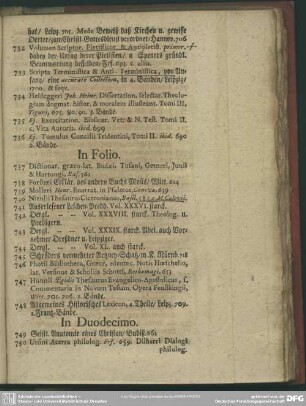 hat/ Leipz. 705. Mede Beweiß daß Kirchen u. gewisse
Oerter zum Christl. Gottesdienst verordnet/ Hannov. 706
732 Volumen Scriptor. Pietisticor. & Antipietist.
haben der Antrag derer Pietisten/ u. Speners gründl.
Beantwortung desselben/ Frf. 693. & alia.
733 Scripta Terministica & Anti-Terministica, von Anfang/
eine accurate Collection, in 4. Bänden/ Leipzig/
1700. & seqv.
734 Heideggeri Joh. Henr. Dissertation. selectae, Theologiam
dogmat. histor. & moralem illustrant. Tomi III,
Tiguri, 675. 80. 90. 3. Bände.
735 Ej. Exercitation. Biblicae, Vet. & N. Test. Tomi II.
c. Vita Autoris, ibid. 699
736 Ej. Tumulus Concilii Tridentini, Tomi II. ibid. 690
2. Bände.
In Folio.
737 Dictionar. graeco-lat. Budaei, Tusani, Gesneri, Junii
& Hartongi, Bas. 561
738 Forsters Erklär. des andern Buchs Mosis/ Witt. 614
739 Molleri Henr. Enarrat. in Psalmos, Genevae, 639
740 Nizolii Thesaurus Ciceronianus, Basil.
741 Auserlesener Leichen-Predd. Vol. XXXVI. starck.
742 Dergl. — — Vol. XXXVIII. starck. Theolog. u.
Predigern.
743 Dergl. — — Vol. XXXIX. starck. Adel. auch Vornehmer
Dresdner u. Leipziger.
744 Dergl. — — Vol. XL. auch starck.
745 Schröders vermehrter Artzney-Schatz, in
746 Photii Bibliotheca, Graece, edente, c. Notis Hoeschelio,
lat. Versione & Scholiis Schotti, Rothomagi, 653
747 Hunnii Ægidii Thesaurus Evangelico-Apostolicus, c.
Commentario in Novum Testam. Opera Feustkingii,
Witt. 705. 706. 2. Bände.
748 Allgemeines Historisches Lexicon, 4. Theile/ Leipz. 709.
2. Frantz-Bände.
In Duodecimo.
749 Geistl. Anatomie eines Christen/ Budiß. 661
750 Ursini Acerra philolog. Frf. 659. Dilherri Dialog.
philolog.